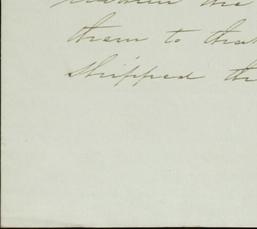 the
them to that
shipped th